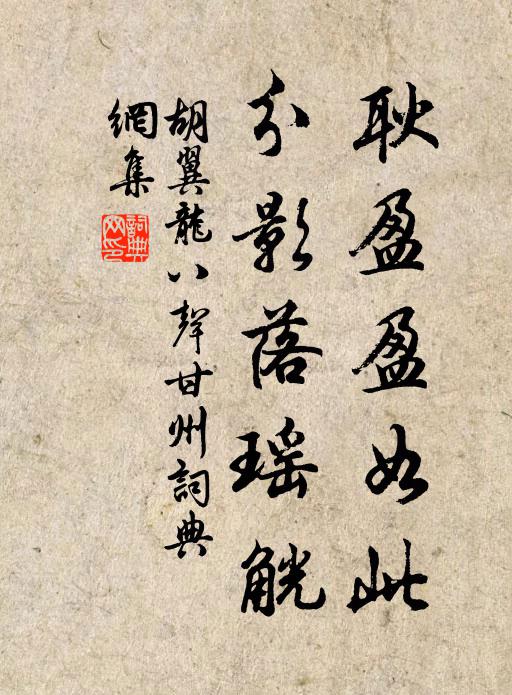 耿盈盈如此
分影落瑤觥
胡翼龍八聲甘州詞典
網集
詞典
網印